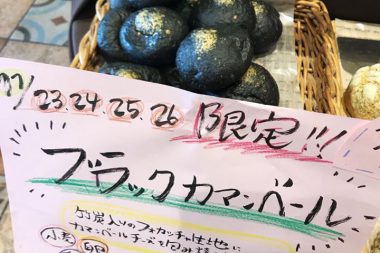 12/23.24.25.26 限定!!!
ブラックカマンベール
竹炭入りのフォカッチャ生地に
カマンベールチーズを包み
小麦 卵